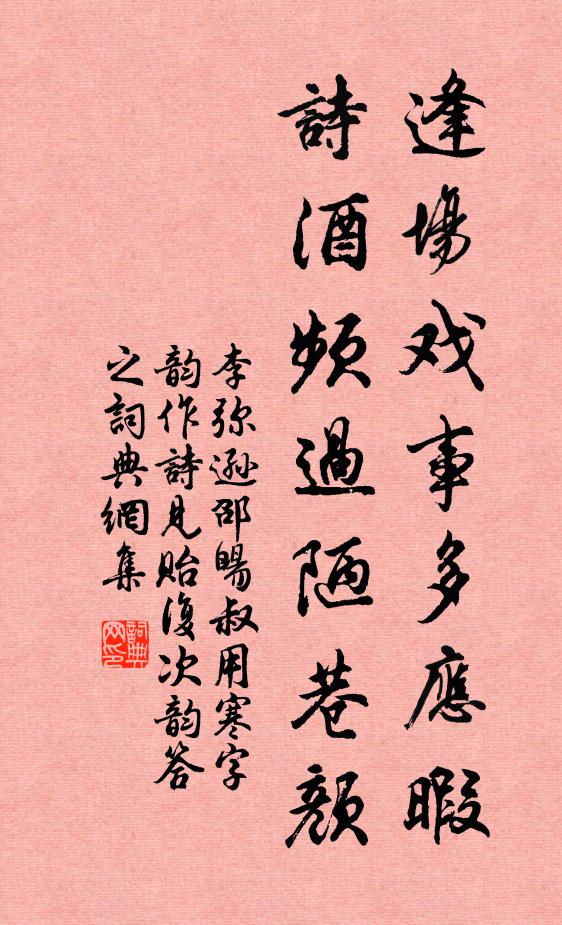 逢場戏事多應暇
詩酒頻過陋巷顏
李弥遜邵暘叔用寒字
韵作詩見貽復次韵答
之詞典網集
詞典网印